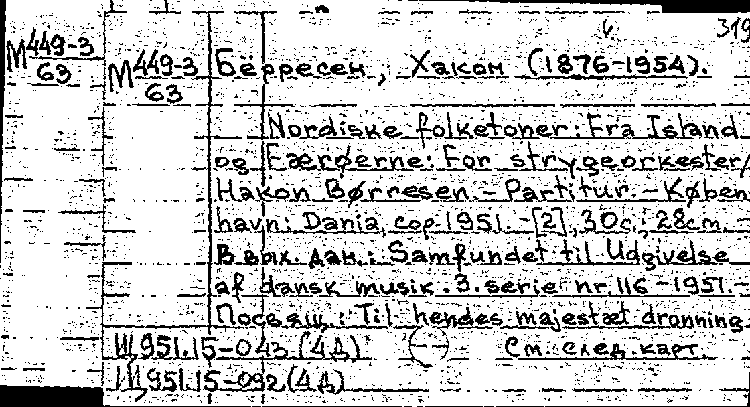 319
М 449-3
63
М 449-3
63
Бёрресен, Хакон (1876-1954).
Nordiske folketoner: Fra Island
og Færøerne: For strygeorkester/
Hakon Børresen. - Partitur. - Køben
havn: Dania, cop. 1951. - [2], 30 с.; 28 см. -
В вых. дан.: Samfundet til Udgivelse
af dansk musik. 3. serie nr. 116 - 1951. -
Посвящ.: Til hendes majestæt dronning
Щ951.15-043(4Д) См. след. карт.
Щ951.15-092(4Д)